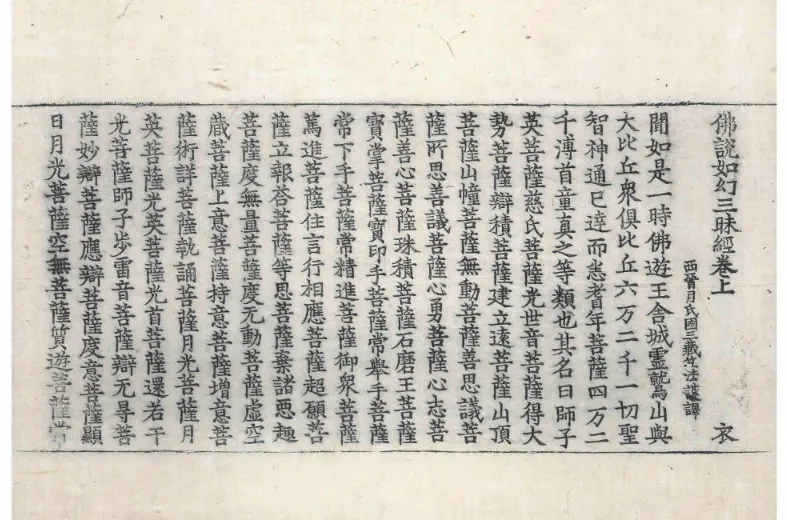 佛說如幻三昧經卷上
衣
西晉月氏國三藏竺法護譯
聞如是一時佛遊王舍城靈鷲山與
大比丘衆俱比丘六万二千一切聖
智神通已達而悉耆年菩薩四万二
千溥首童真之等類也其名曰師子
英菩薩慈氏菩薩光世音菩薩得大
勢菩薩辯積菩薩建立遠菩薩山頂
菩薩山幢菩薩無動菩薩善思議菩
薩所思善議菩薩心勇菩薩心志菩
薩善心菩薩珠積菩薩石磨王菩薩
寶掌菩薩寶印手菩薩常舉手菩薩
常下手菩薩常精進菩薩御衆菩薩
篤進菩薩住言行相應菩薩超願菩
薩立報荅菩薩等思菩薩棄諸惡趣
菩薩度無量菩薩度无動菩薩虛空
藏菩薩上意菩薩持意菩薩增意菩
薩術詳菩薩執誦菩薩月光菩薩月
英菩薩光英菩薩光首菩薩還若干
光菩薩師子步雷音菩薩辯无㝵菩
薩妙辯菩薩應辯菩薩度意菩薩顯
日月光菩薩空無菩薩質遊菩薩常